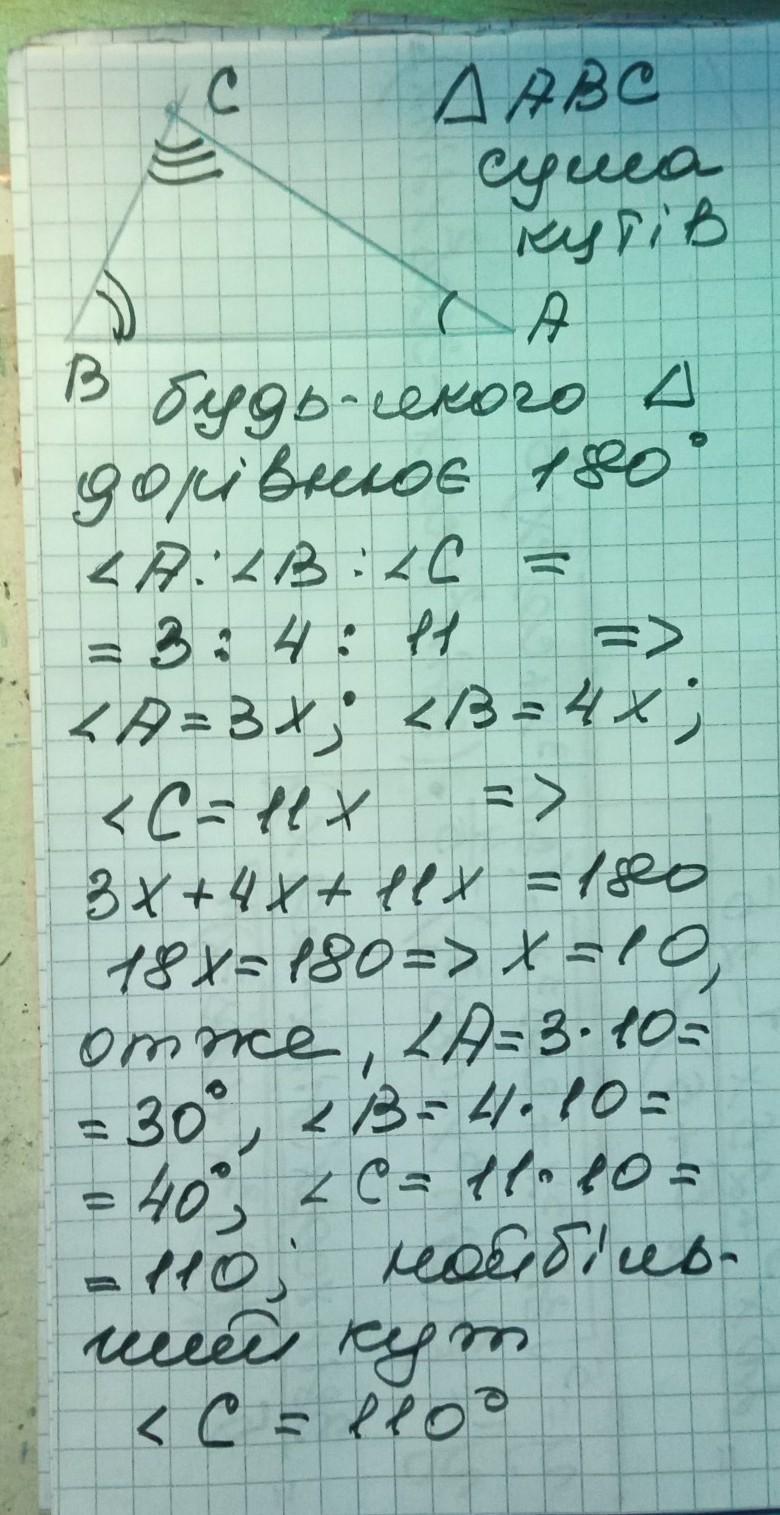 C
△ ABC
сума
кутів
A
B
будь-якого △
дорівнює 180°
<A:<B:<C =
= 3 : 4 : 11 =>
<A=3x; <B=4x;
<C=11x =>
3x+4x+11x =180
18x=180=> x=10,
отже, <A=3·10=
=30°, <B=4·10=
=40°, <C=11·10=
=110; найбіль-
ший кут
<C = 110°